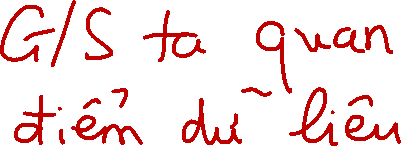 G/S ta quan
điểm dữ liêu